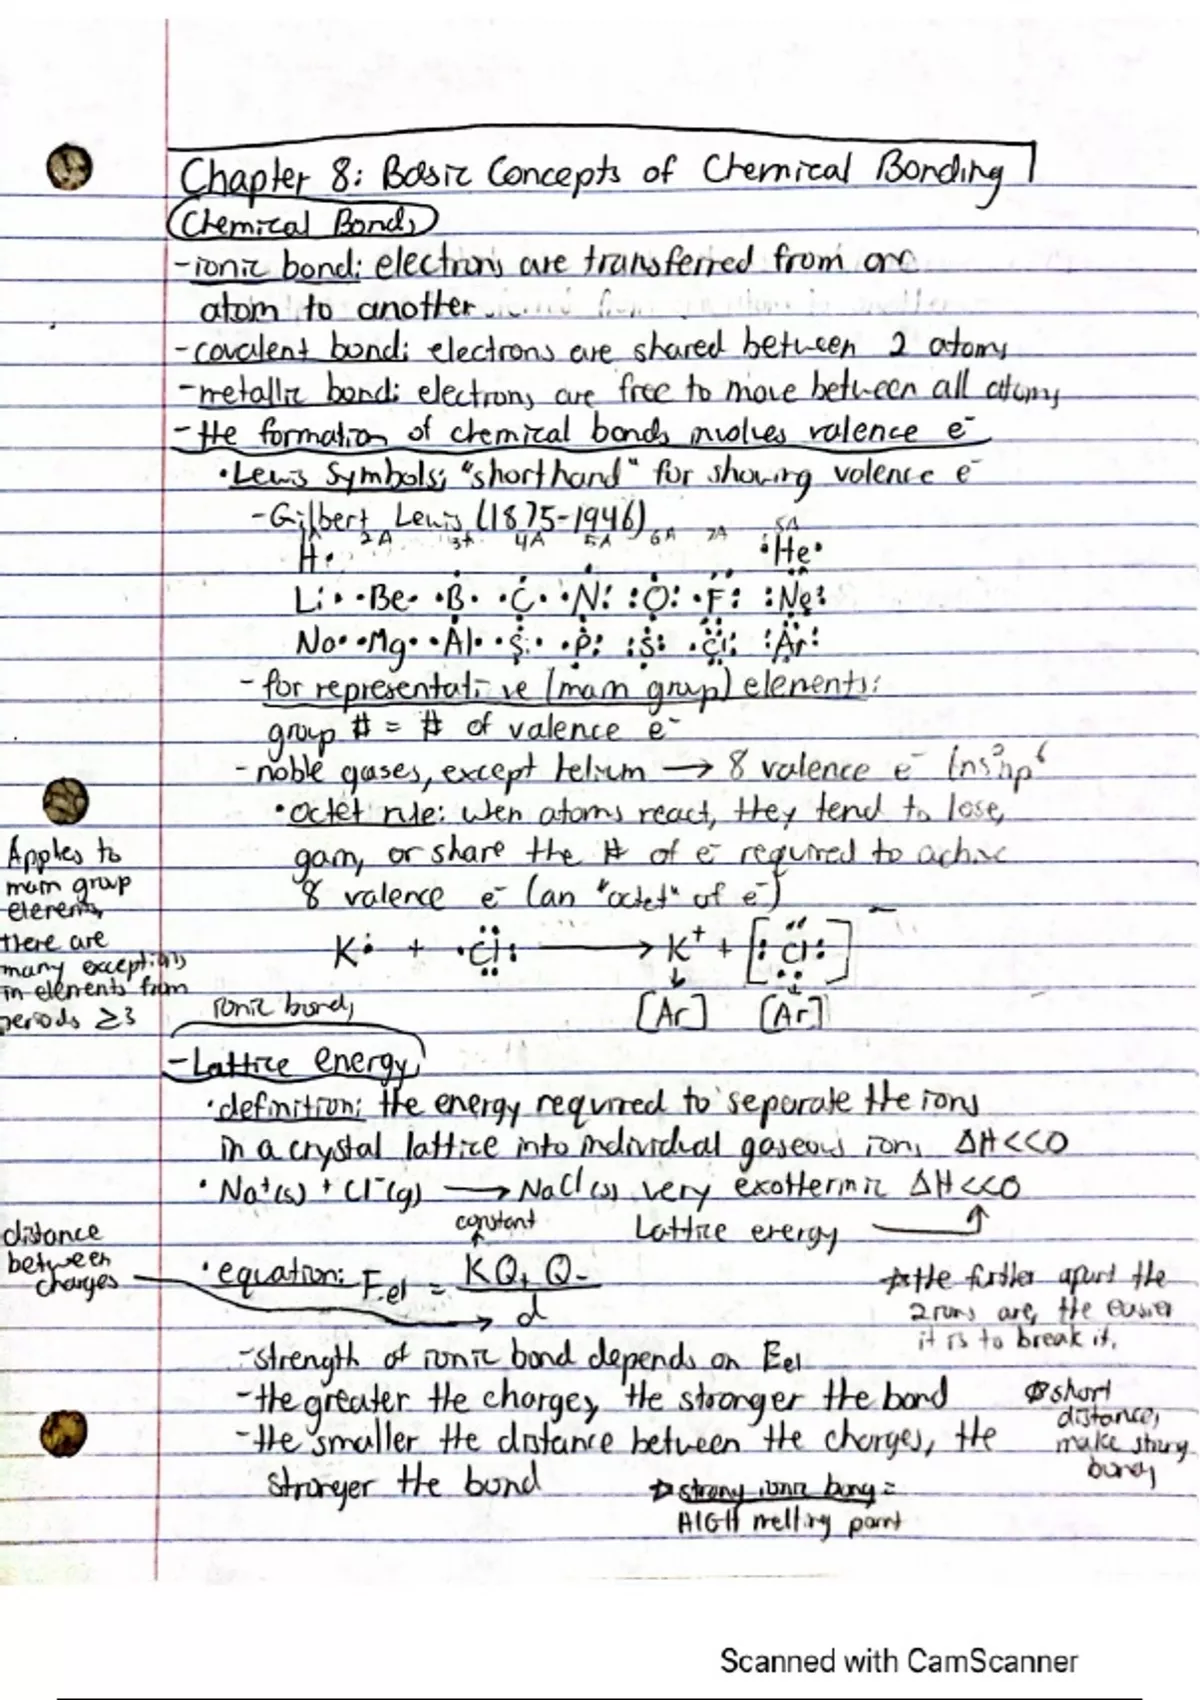 Chapter 8: Basic Concepts of Chemical Bonding
Chemical Bonds
- ionic bond: electrons are transferred from one
atom to another
- covalent bond: electrons are shared between 2 atoms
- metallic bond: electrons are free to move between all atoms
- the formation of chemical bonds involves valence e⁻
• Lewis Symbols: "shorthand" for showing valence e⁻
- Gilbert Lewis (1875-1946)
1A 2A 3A 4A 5A 6A 7A 8A
H· ·He·
Li· ·Be· ·B· ·C· ·N: :O: ·F: :Ne:
Na· ·Mg· ·Al· ·Si· ·P: :S: ·Cl: :Ar:
- for representative (main group) elements:
group # = # of valence e⁻
- noble gases, except helium → 8 valence e⁻ (ns²np⁶
• octet rule: when atoms react, they tend to lose,
gain, or share the # of e⁻ required to achieve
8 valence e⁻ (an "octet" of e⁻)
Applies to
main group
elements,
there are
many exceptions
in elements from
periods ≥3
K· + ·Cl: → K⁺ + [:Cl:]⁻
[Ar] [Ar]
ionic bonds
- Lattice energy
• definition: the energy required to separate the ions
in a crystal lattice into individual gaseous ions ΔH<<0
• Na⁺(s) + Cl⁻(g) → NaCl(s) very exothermic ΔH<<0
Lattice energy
constant
distance
between
charges
• equation: Eel = KQ+Q-
d
* the further apart the
2 ions are, the easier
it is to break it.
- strength of ionic bond depends on Eel
- the greater the charges, the stronger the bond
- the smaller the distance between the charges, the
stronger the bond
short
distances
make strong
bonds
strong ionic bong =
HIGH melting point
Scanned with CamScanner